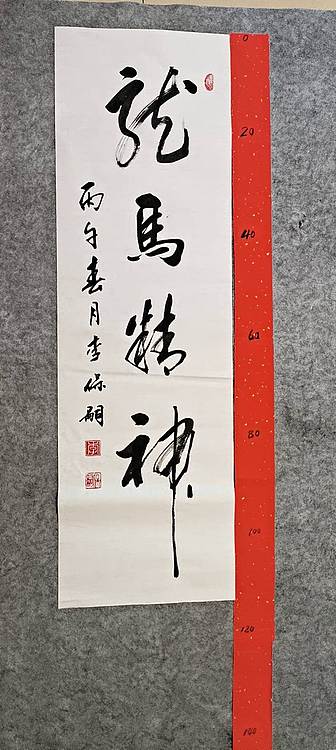 龙马精神
丙午春月李保嗣
0
20
40
60
80
100
120
140